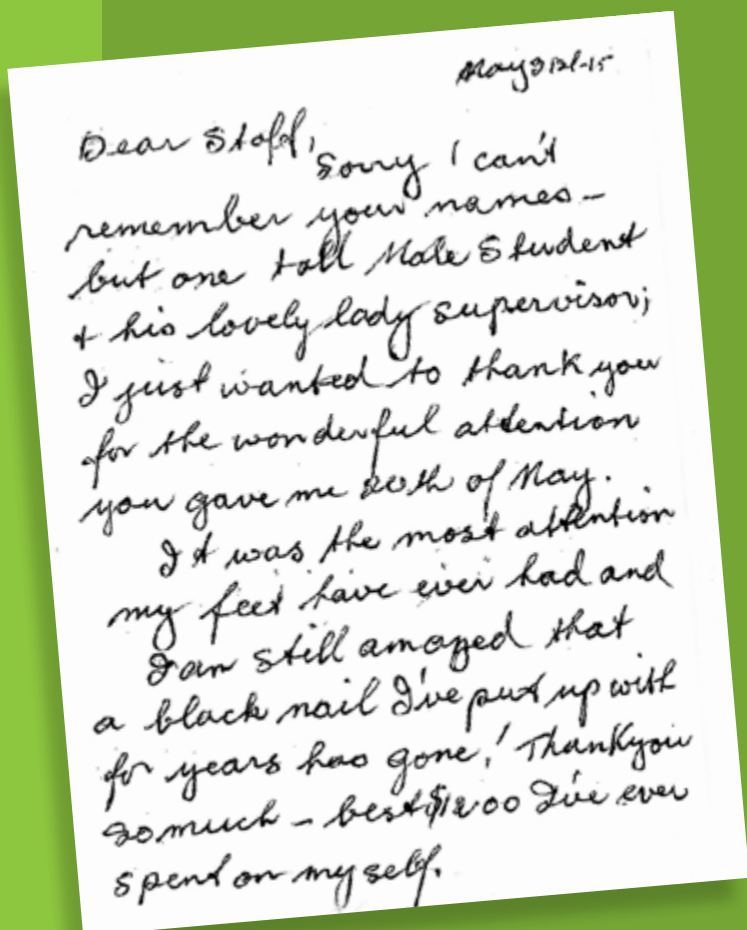 May 21st-15
Dear Staff,
Sorry I can't
remember your names –
but one tall Male Student
+ his lovely lady supervisor;
I just wanted to thank you
for the wonderful attention
you gave me 20th of May.
It was the most attention
my feet have ever had and
I am still amazed that
a black nail I've put up with
for years has gone! Thankyou
so much – best $12.00 I've ever
spent on myself.